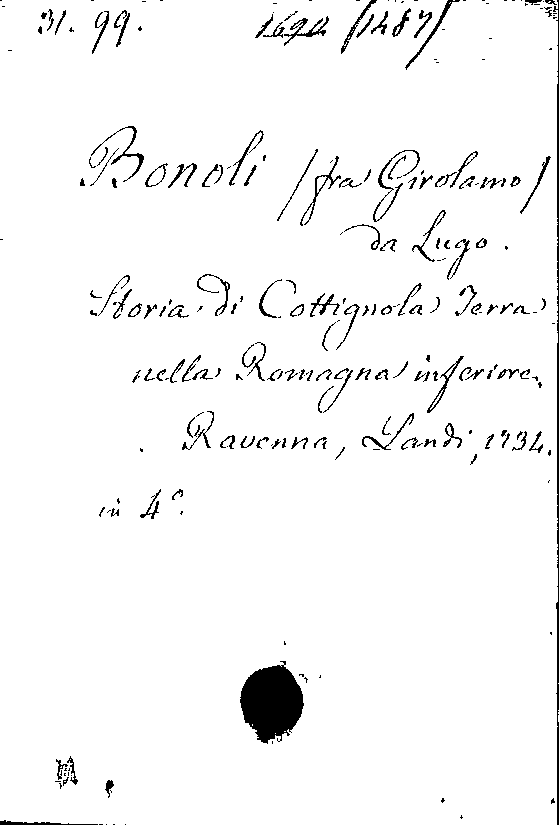 31. 99. 1690 (1487)
Bonoli (fra Girolamo)
da Lugo.
Storia di Cottignola Terra
nella Romagna inferiore.
Ravenna, Landi, 1734.
in 4°.